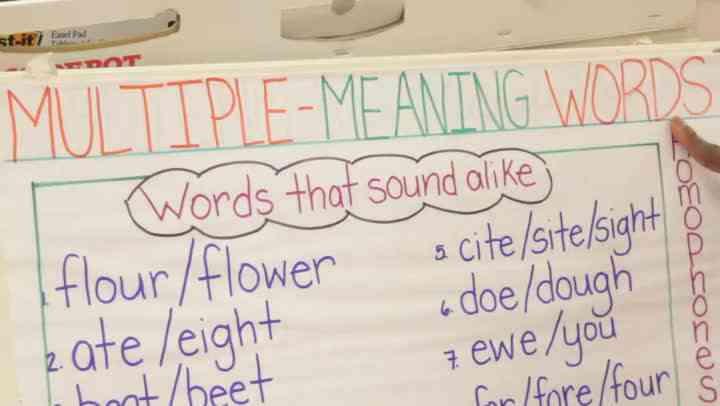 st-it!
Easel Pad
DEPOT
MULTIPLE-MEANING WORDS
Words that sound alike
1. flour/flower
2. ate/eight
/beet
5. cite/site/sight
6. doe/dough
7. ewe/you
for/fore/four
Homophones